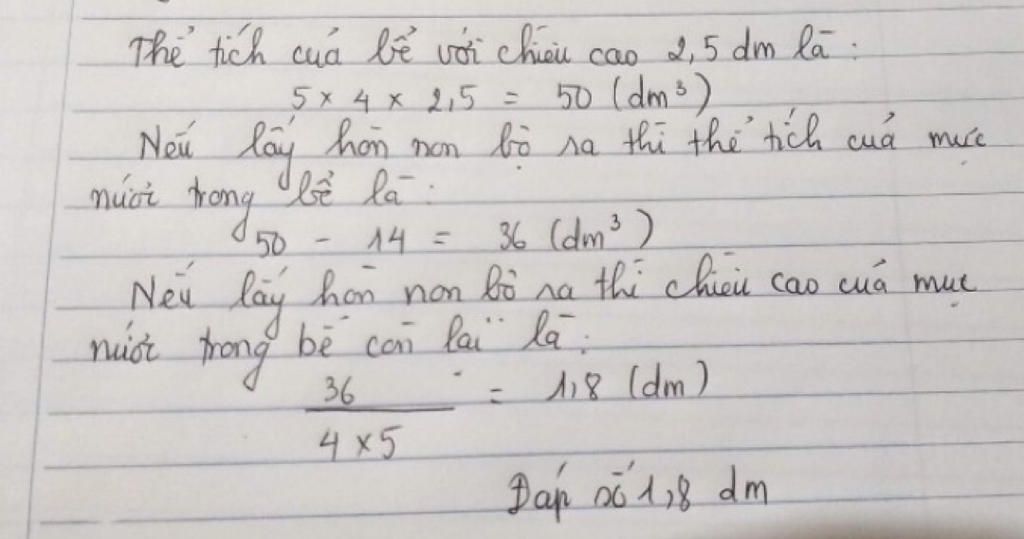 Thể tích của bể với chiều cao 2,5 dm là :
5 × 4 × 2,5 = 50 (dm³)
Nếu lấy hòn non bộ ra thì thể tích của mực
nước trong bể là :
50 - 14 = 36 (dm³)
Nếu lấy hòn non bộ ra thì chiều cao của mực
nước trong bể còn lại là :
36 / 4 × 5 = 1,8 (dm)
Đáp số 1,8 dm